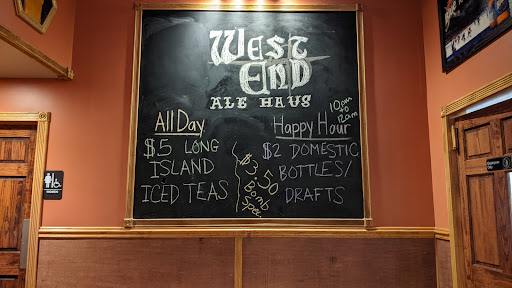 WEST
END
ALE HAUS
All Day
$5 LONG
ISLAND
ICED TEAS
$3.50
Bomb
Happy Hour
10pm
to
12am
$2 DOMESTIC
BOTTLES/
DRAFTS